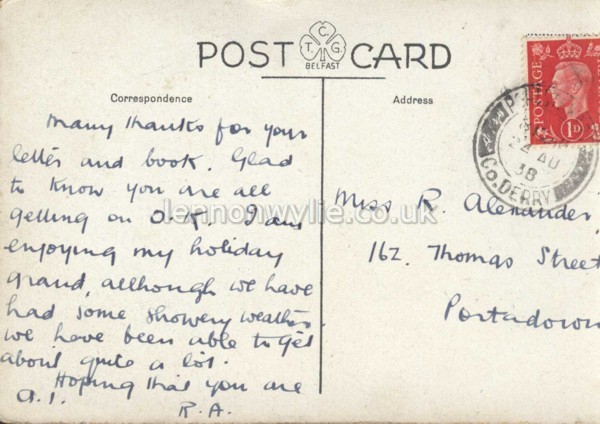 POST CARD
C.
T. G.
BELFAST
Correspondence
Address
POSTAGE
1D
24 AU
38
Co. DERRY
Many thanks for your
letter and book. Glad
to know you are all
getting on O.K. I am
enjoying my holiday
grand, although we have
had some showery weather
we have been able to get
about quite a lot.
Hoping that you are
a.1.
R.A.
Miss R. Alexander,
162. Thomas Street
Portadown
lennonwylie.co.uk